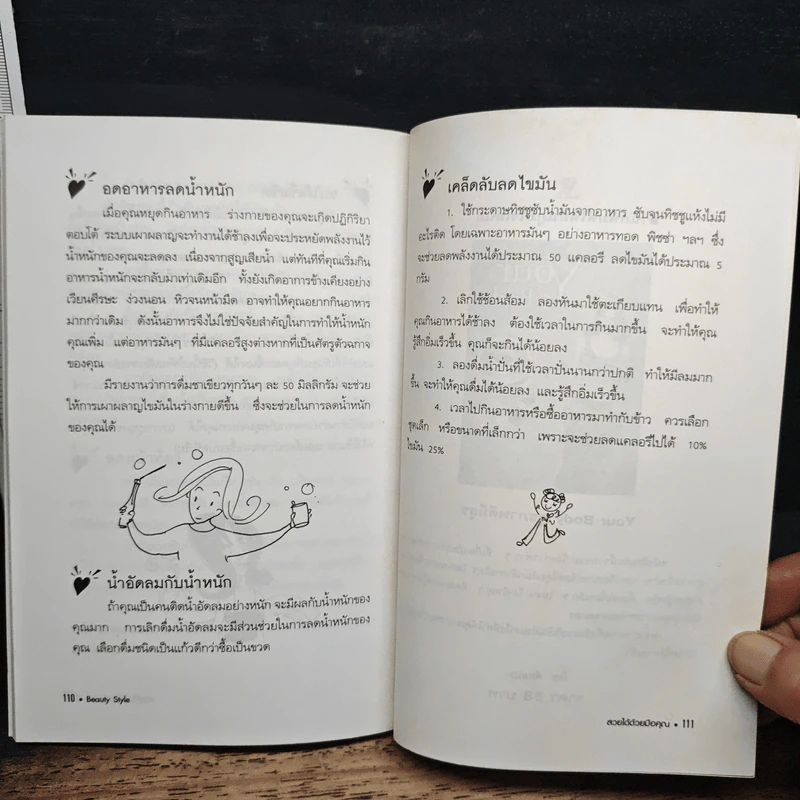 อดอาหารลดน้ำหนัก
เมื่อคุณหยุดกินอาหาร ร่างกายของคุณจะเกิดปฏิกิริยา
ตอบโต้ ระบบเผาผลาญจะทำงานได้ช้าลงเพื่อจะประหยัดพลังงานไว้
น้ำหนักของคุณจะลดลง เนื่องจากสูญเสียน้ำ แต่ทันทีที่คุณเริ่มกิน
อาหารน้ำหนักจะกลับมาเท่าเดิมอีก ทั้งยังเกิดอาการข้างเคียงอย่าง
เวียนศีรษะ ง่วงนอน หิวจนหน้ามืด อาจทำให้คุณอยากกินอาหาร
มากกว่าเดิม ดังนั้นอาหารจึงไม่ใช่ปัจจัยสำคัญในการทำให้น้ำหนัก
คุณเพิ่ม แต่อาหารมันๆ ที่มีแคลอรีสูงต่างหากที่เป็นศัตรูตัวฉกาจ
ของคุณ
มีรายงานว่าการดื่มชาเขียวทุกวันๆ ละ 50 มิลลิกรัม จะช่วย
ให้การเผาผลาญไขมันในร่างกายดีขึ้น ซึ่งจะช่วยในการลดน้ำหนัก
ของคุณได้
น้ำอัดลมกับน้ำหนัก
ถ้าคุณเป็นคนติดน้ำอัดลมอย่างหนัก จะมีผลกับน้ำหนักของ
คุณมาก การเลิกดื่มน้ำอัดลมจะมีส่วนช่วยในการลดน้ำหนักของ
คุณ เลือกดื่มชนิดเป็นแก้วดีกว่าซื้อเป็นขวด
110 • Beauty Style
เคล็ดลับลดไขมัน
1. ใช้กระดาษทิชชูซับน้ำมันจากอาหาร ซับจนทิชชูแห้งไม่มี
อะไรติด โดยเฉพาะอาหารมันๆ อย่างอาหารทอด พิซซ่า ฯลฯ ซึ่ง
จะช่วยลดพลังงานได้ประมาณ 50 แคลอรี ลดไขมันได้ประมาณ 5
กรัม
2. เลิกใช้ช้อนส้อม ลองหันมาใช้ตะเกียบแทน เพื่อทำให้
คุณกินอาหารได้ช้าลง ต้องใช้เวลาในการกินมากขึ้น จะทำให้คุณ
รู้สึกอิ่มเร็วขึ้น คุณก็จะกินได้น้อยลง
3. ลองดื่มน้ำปั่นที่ใช้เวลาปั่นนานกว่าปกติ ทำให้มีลมมาก
ขึ้น จะทำให้คุณดื่มได้น้อยลง และรู้สึกอิ่มเร็วขึ้น
4. เวลาไปกินอาหารหรือซื้ออาหารมาทำกับข้าว ควรเลือก
ชุดเล็ก หรือขนาดที่เล็กกว่า เพราะจะช่วยลดแคลอรีไปได้ 10%
ไขมัน 25%
สวยได้ด้วยมือคุณ • 111